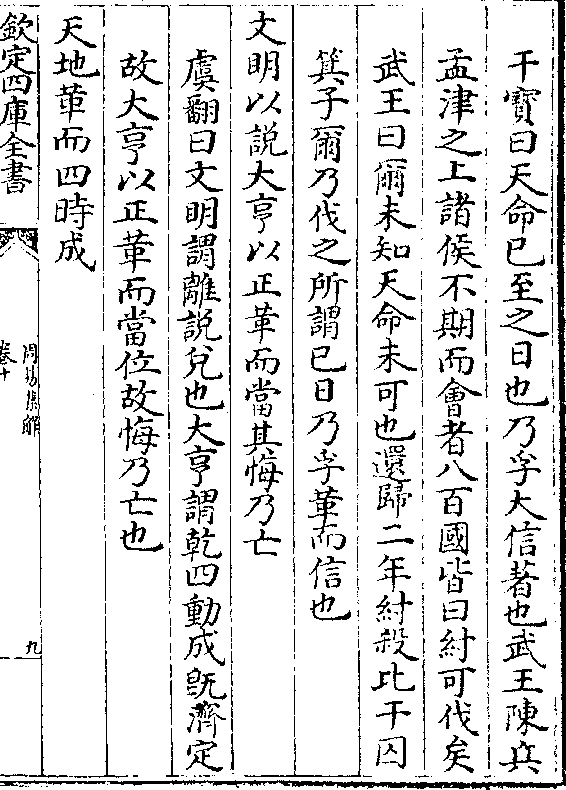 干寶曰天命已至之日也乃孚大信著也武王陳兵
孟津之上諸侯不期而會者八百國皆曰紂可伐矣
武王曰爾未知天命未可也還歸二年紂殺比干囚
箕子爾乃伐之所謂已日乃孚革而信也
文明以說大亨以正革而當其悔乃亡
虞翻曰文明謂離說兌也大亨謂乾四動成既濟定
故大亨以正革而當位故悔乃亡也
天地革而四時成
欽定四庫全書
周易集解
卷十
九